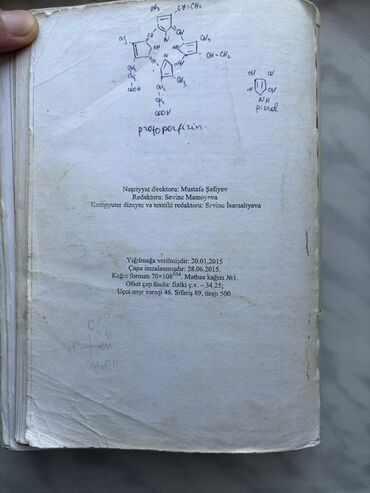 CH=CH₂
CH₃
CH
CH₃
CH=CH₂
CH₃
CH₂
CH₂
COOH
CH₂
CH₂
COOH
protoporfirin
CH
CH
NH
pirrol
Nəşriyyat direktoru: Mustafa Səfiyev
Redaktoru: Sevinc Mamoyeva
Kompyuter dizaynı və texniki redaktoru: Sevinc
Yığılmağa verilmişdir: 20.01.2015
Çapa imzalanmışdır: 28.06.2015.
Kağız formatı 70×108 1/16. Mətbəə kağızı №1.
Ofset çap üsulu: fiziki ç.v. – 34,25;
Uçot nəşr vərəqi 46. Sifariş 89, tirajı 500